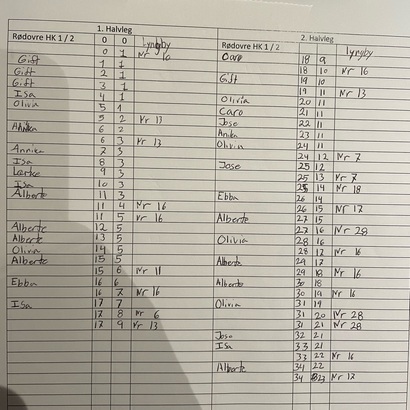 1. Halvleg
Rødovre HK 1/2 0 0 Lyngby
0 1 Nr 10
Gift 1 1
Gift 2 1
Gift 3 1
Isa 4 1
Olivia 5 1
5 2 Nr 13
Annika 6 2
6 3 Nr 13
Annika 7 3
Isa 8 3
Lærke 9 3
Isa 10 3
Alberte 11 3
11 4 Nr 16
11 5 Nr 16
Alberte 12 5
Alberte 13 5
Olivia 14 5
Alberte 15 5
15 6 Nr 11
Ebba 16 6
16 7 Nr 16
Isa 17 7
17 8 Nr 6
17 9 Nr 13
2. Halvleg
Rødovre HK 1/2 Lyngby
Caro 18 9
18 10 Nr 16
Gift 19 10
19 11 Nr 13
Olivia 20 11
Caro 21 11
Jose 22 11
Anika 23 11
Olivia 24 11
24 12 Nr 7
Jose 25 12
25 13 Nr 7
25 14 Nr 18
Ebba 26 14
26 15 Nr 17
Alberte 27 15
27 16 Nr 28
Olivia 28 16
28 17 Nr 16
Alberte 29 17
29 18 Nr 16
Alberte 30 18
30 19 Nr 16
Olivia 31 19
31 20 Nr 28
31 21 Nr 28
Jose 32 21
Isa 33 21
33 22 Nr 16
Alberte 34 22
34 23 Nr 17